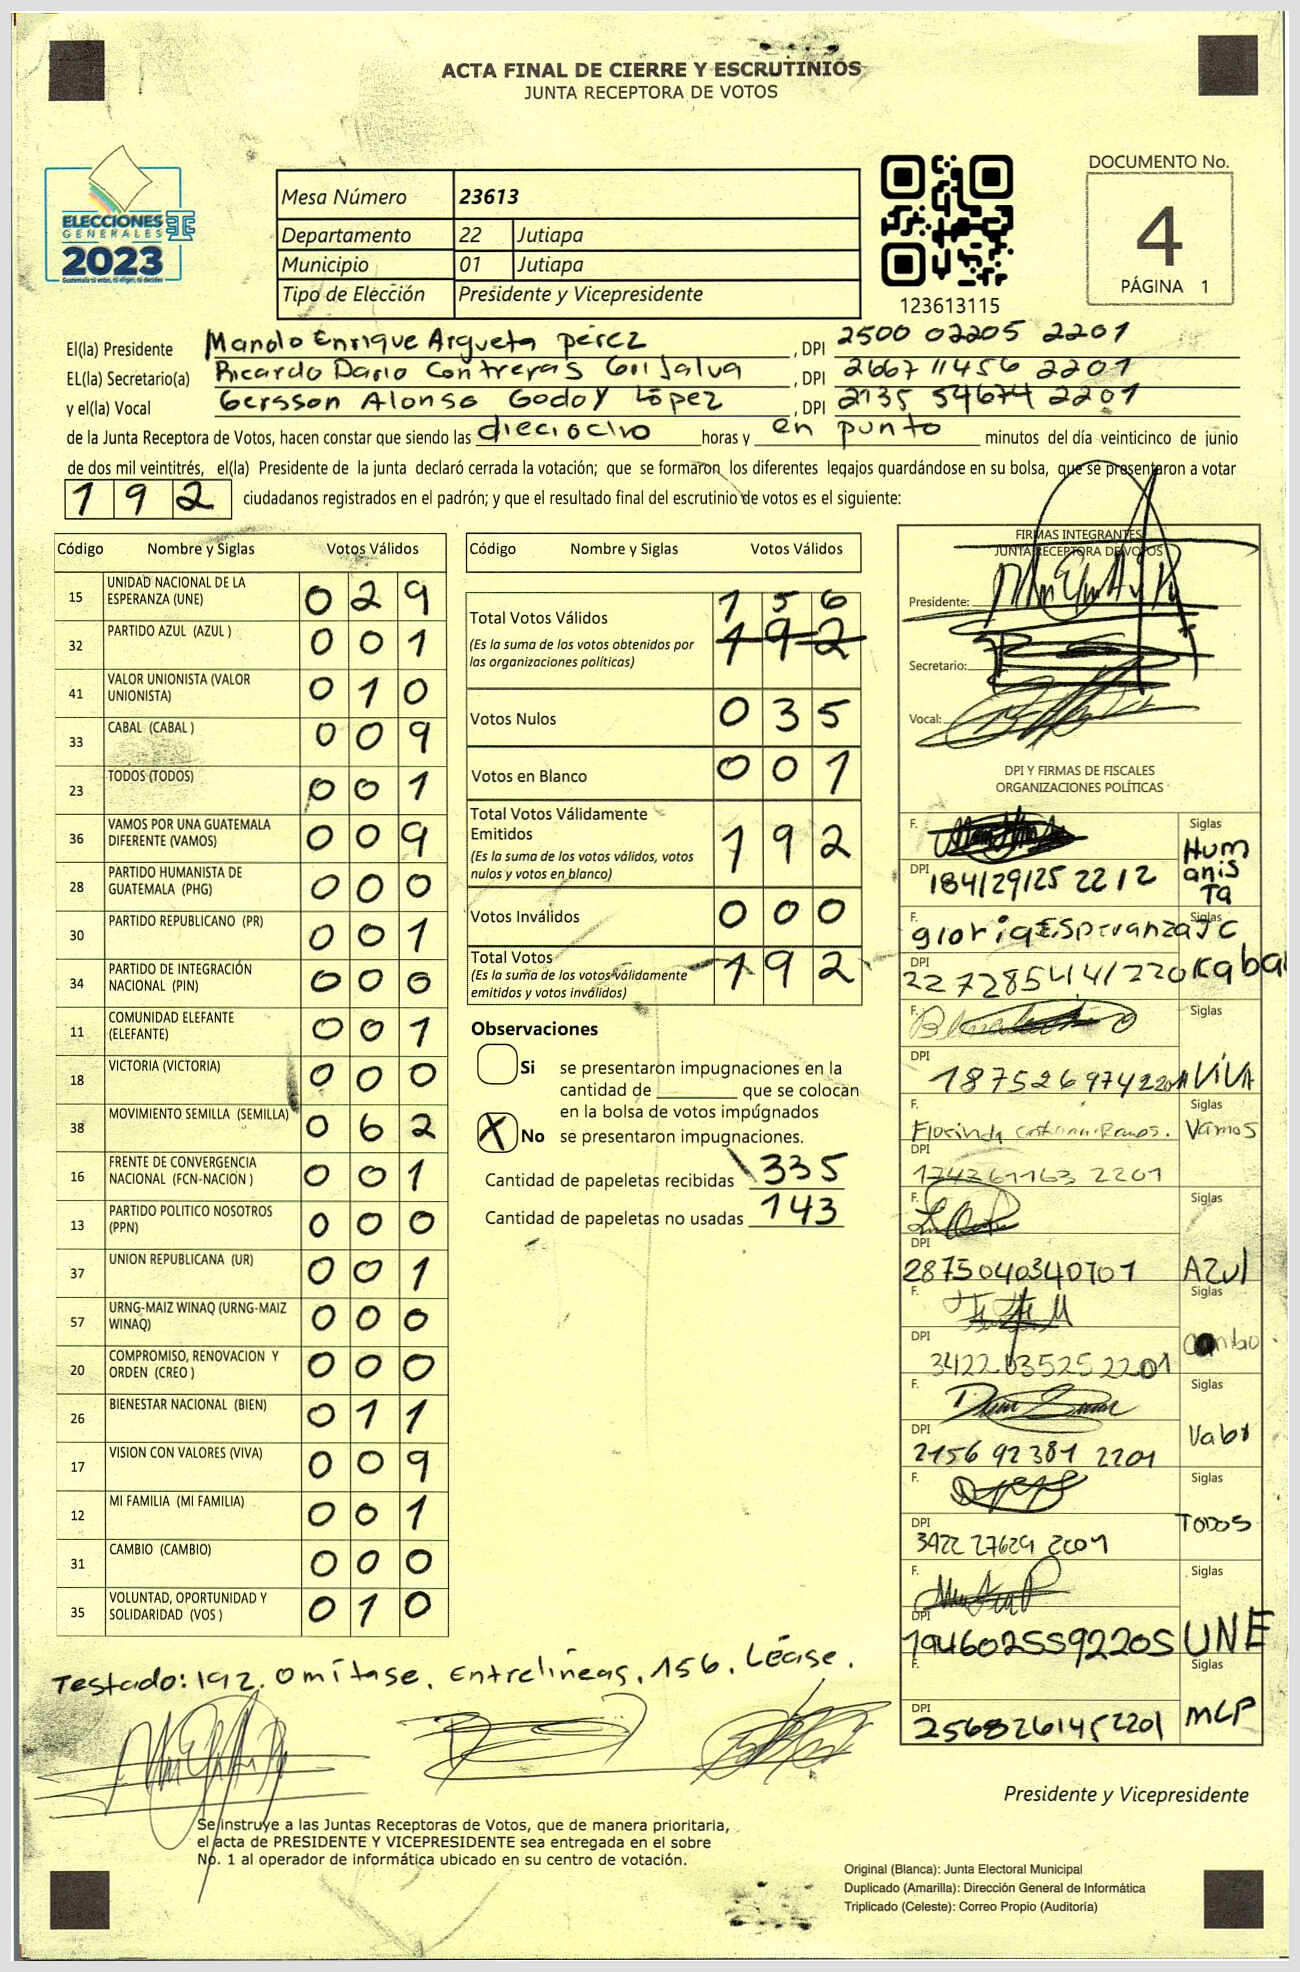 ACTA FINAL DE CIERRE Y ESCRUTINIOS
JUNTA RECEPTORA DE VOTOS
ELECCIONES
GENERALES
2023
Guatemala tú votas, tú eliges, tú decides
Mesa Número 23613
Departamento 22 Jutiapa
Municipio 01 Jutiapa
Tipo de Elección Presidente y Vicepresidente
123613115
DOCUMENTO No.
4
PÁGINA 1
El(la) Presidente Manolo Enrique Argueta pérez , DPI 2500 02205 2201
EL(la) Secretario(a) Ricardo Dario Contreras Grijalva , DPI 2667 11456 2201
y el(la) Vocal Gersson Alonso Godoy López , DPI 2135 54674 2201
de la Junta Receptora de Votos, hacen constar que siendo las dieciocho horas y en punto minutos del día veinticinco de junio
de dos mil veintitrés, el(la) Presidente de la junta declaró cerrada la votación; que se formaron los diferentes legajos guardándose en su bolsa, que se presentaron a votar
192 ciudadanos registrados en el padrón; y que el resultado final del escrutinio de votos es el siguiente:
Código Nombre y Siglas Votos Válidos
15 UNIDAD NACIONAL DE LA ESPERANZA (UNE) 029
32 PARTIDO AZUL (AZUL ) 001
41 VALOR UNIONISTA (VALOR UNIONISTA) 010
33 CABAL (CABAL ) 009
23 TODOS (TODOS) 001
36 VAMOS POR UNA GUATEMALA DIFERENTE (VAMOS) 009
28 PARTIDO HUMANISTA DE GUATEMALA (PHG) 000
30 PARTIDO REPUBLICANO (PR) 001
34 PARTIDO DE INTEGRACIÓN NACIONAL (PIN) 000
11 COMUNIDAD ELEFANTE (ELEFANTE) 001
18 VICTORIA (VICTORIA) 000
38 MOVIMIENTO SEMILLA (SEMILLA) 062
16 FRENTE DE CONVERGENCIA NACIONAL (FCN-NACION ) 001
13 PARTIDO POLITICO NOSOTROS (PPN) 000
37 UNION REPUBLICANA (UR) 001
57 URNG-MAIZ WINAQ (URNG-MAIZ WINAQ) 000
20 COMPROMISO, RENOVACION Y ORDEN (CREO ) 000
26 BIENESTAR NACIONAL (BIEN) 011
17 VISION CON VALORES (VIVA) 009
12 MI FAMILIA (MI FAMILIA) 001
31 CAMBIO (CAMBIO) 000
35 VOLUNTAD, OPORTUNIDAD Y SOLIDARIDAD (VOS ) 010
Código Nombre y Siglas Votos Válidos
156
Total Votos Válidos 192
(Es la suma de los votos obtenidos por
las organizaciones políticas)
Votos Nulos 035
Votos en Blanco 001
Total Votos Válidamente
Emitidos 192
(Es la suma de los votos válidos, votos
nulos y votos en blanco)
Votos Inválidos 000
Total Votos 192
(Es la suma de los votos válidamente
emitidos y votos inválidos)
Observaciones
Si se presentaron impugnaciones en la
cantidad de que se colocan
en la bolsa de votos impúgnados
X No se presentaron impugnaciones.
Cantidad de papeletas recibidas 335
Cantidad de papeletas no usadas 143
FIRMAS INTEGRANTES
JUNTA RECEPTORA DE VOTOS
Presidente:
Secretario:
Vocal:
DPI Y FIRMAS DE FISCALES
ORGANIZACIONES POLÍTICAS
F. Siglas
DPI 184129125 2212 Humanista
F. gloria Esperanza J C Siglas
DPI 22 7728544 1/220 Kabal
F. Siglas
DPI 1875269742201 VIVA
F. Florinda Ramos. Siglas Vamos
DPI 174361163 2201
F. Siglas
DPI 2875040340701 Azul
F. Siglas
DPI 3422 035252201 Cambio
F. Siglas
DPI 2156 92381 2201 Valor
F. Siglas
DPI 3422 27629 2201 TODOS
F. Siglas
DPI 1946025592205 UNE
F. Siglas
DPI 2568261452201 MLP
Testado: 192. Omítase. Entrelíneas. 156. Léase.
Presidente y Vicepresidente
Se instruye a las Juntas Receptoras de Votos, que de manera prioritaria,
el acta de PRESIDENTE Y VICEPRESIDENTE sea entregada en el sobre
No. 1 al operador de informática ubicado en su centro de votación.
Original (Blanca): Junta Electoral Municipal
Duplicado (Amarilla): Dirección General de Informática
Triplicado (Celeste): Correo Propio (Auditoría)